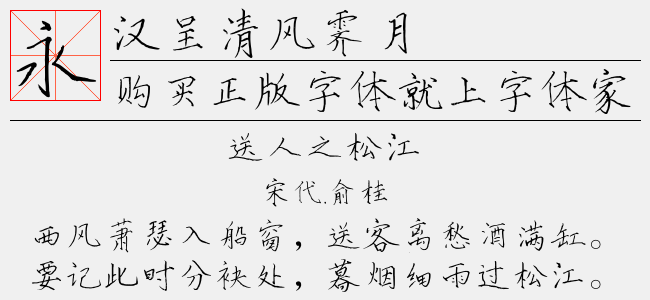 永
汉呈清风霁月
购买正版字体就上字体家
送人之松江
宋代.俞桂
西风萧瑟入船窗，送客离愁酒满缸。
要记此时分袂处，暮烟细雨过松江。